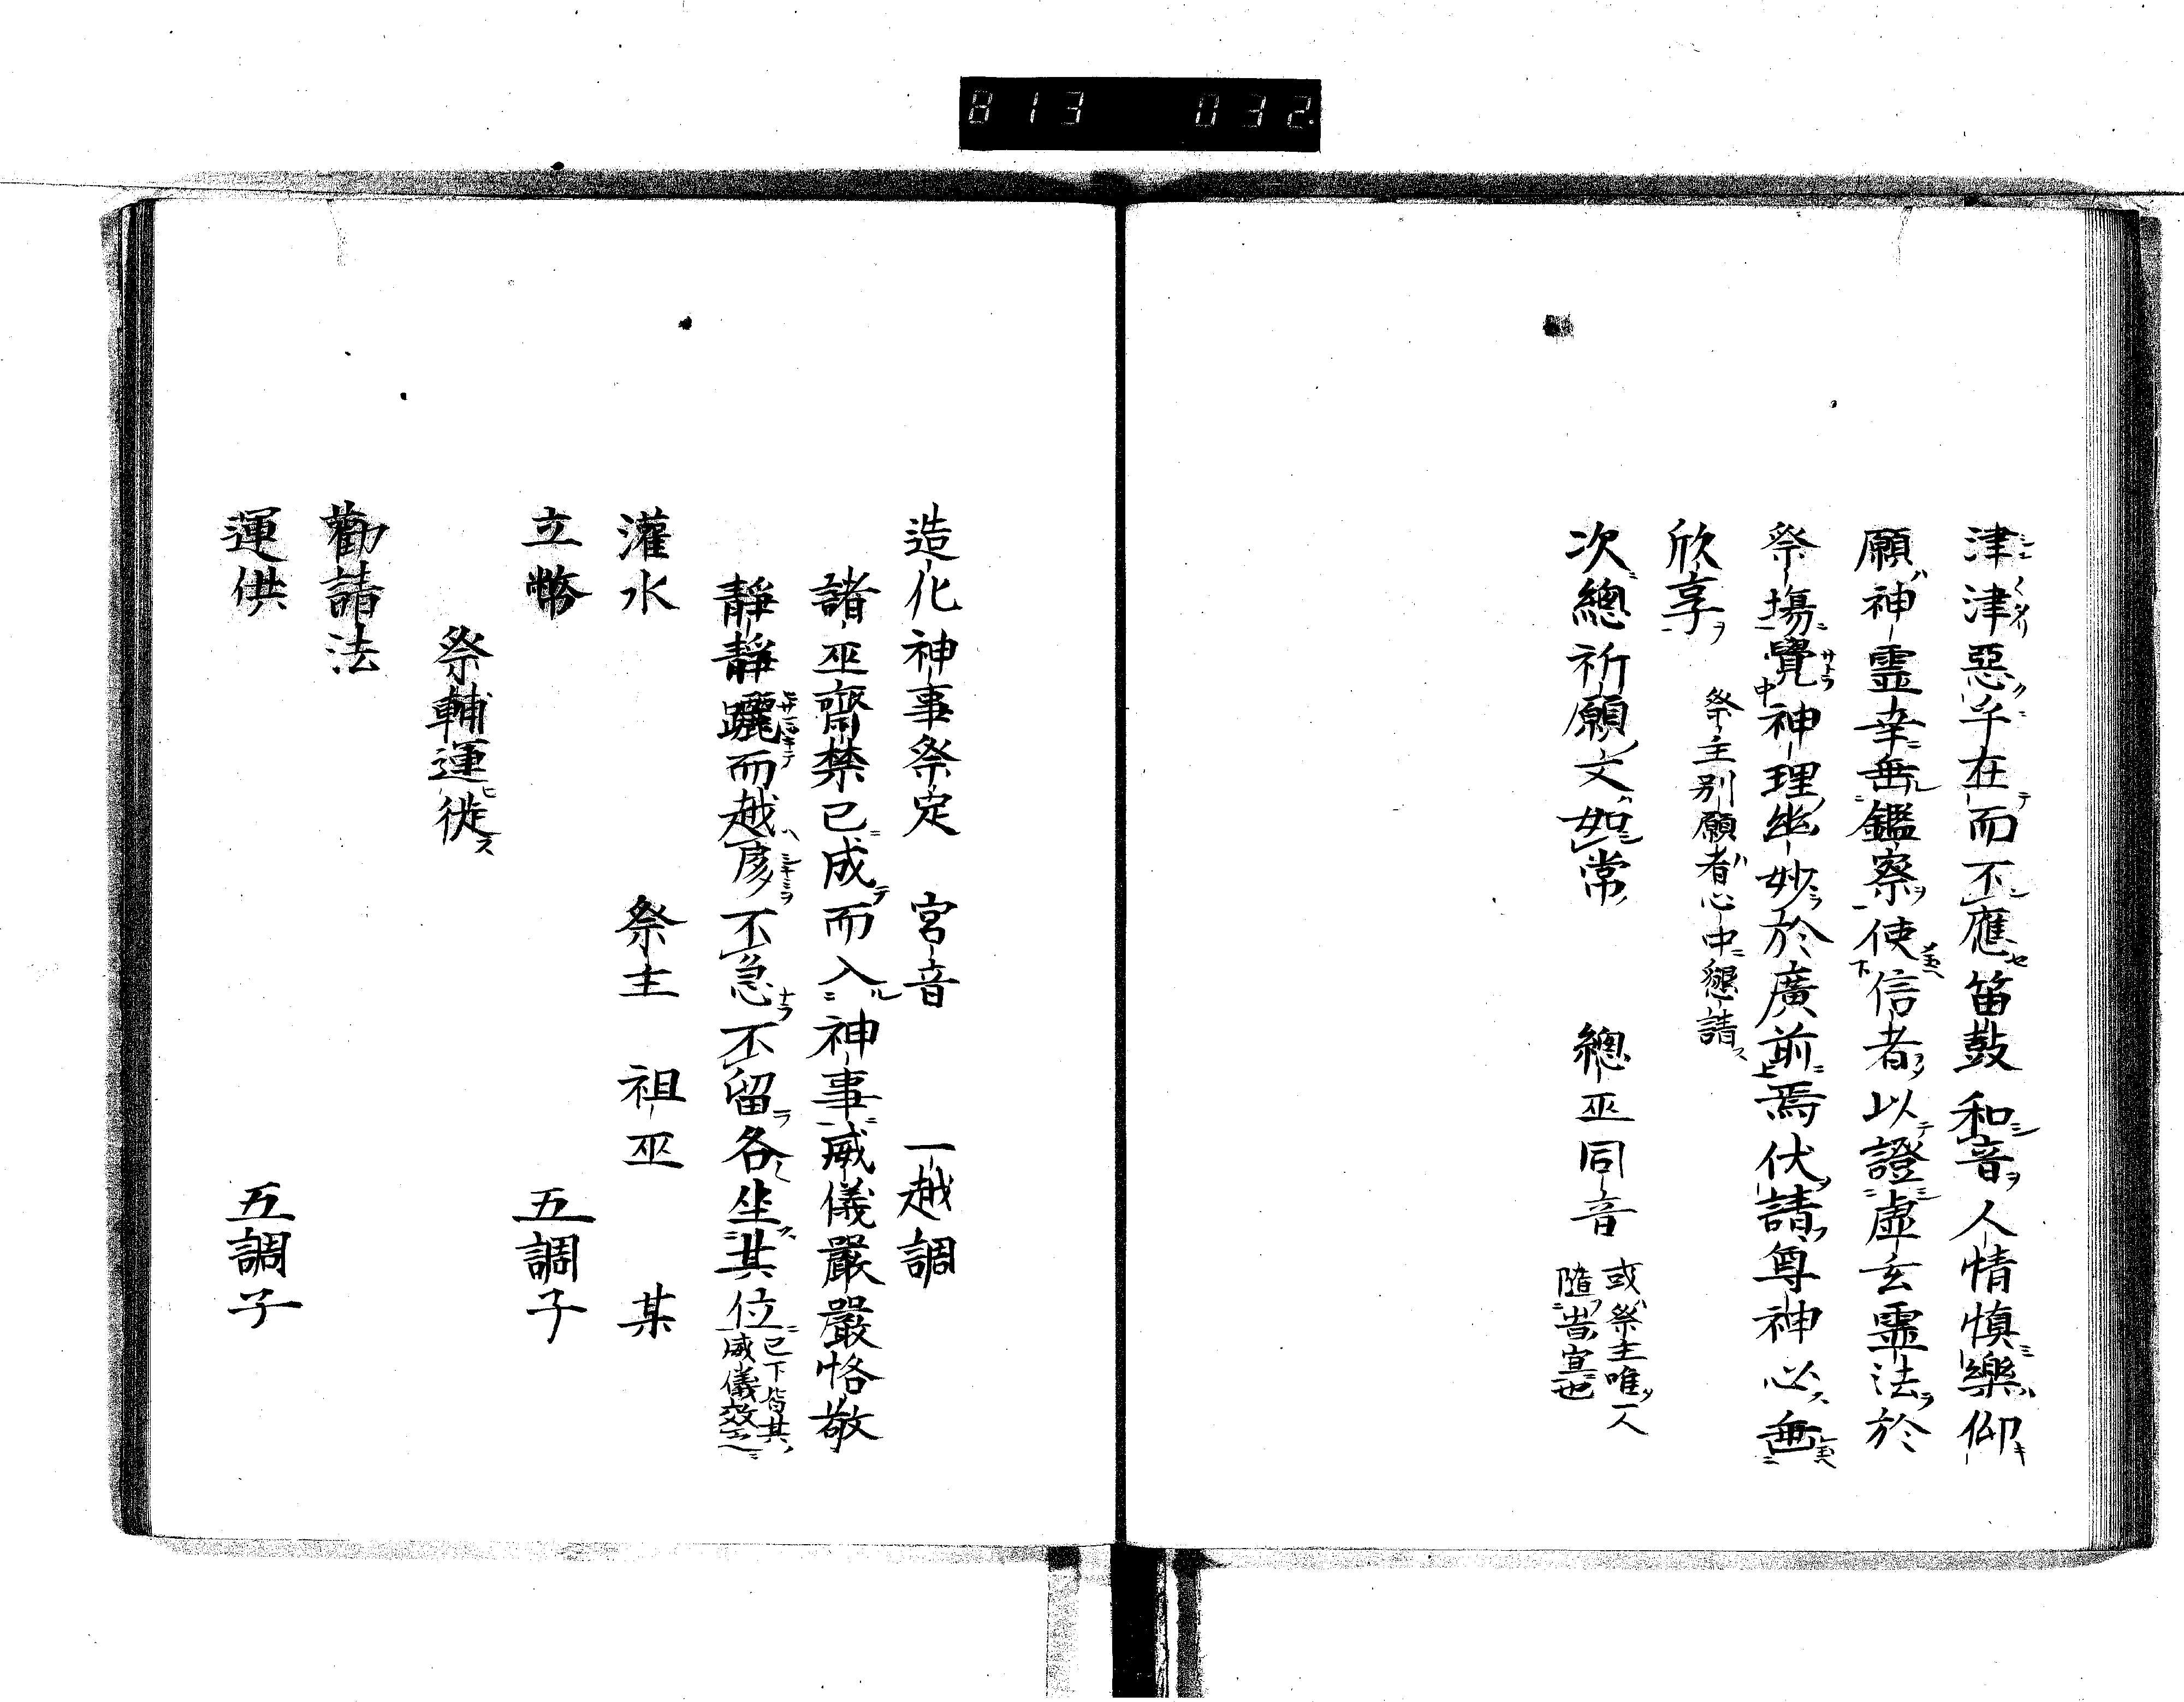 813 032
津津惡乎在而不應笛鼓和音人情慎樂仰
願神靈幸垂鑑察使信者以證虛玄靈法於
祭場覺神理幽妙於廣前焉伏請尊神必垂
欣享 祭主別願者心中懇請
次總祈願文如常 總巫同音 或祭主唯一人
隨旹宣也
造化神事祭定 宮音 一越調
諸巫齋禁已成而入神事威儀嚴嚴恪敬
靜靜躧而越 不急不留各坐其位 已下皆其
威儀效之
灌水 祭主 祖巫 某
立幣 五調子
祭輔運徙
勸請法
運供 五調子